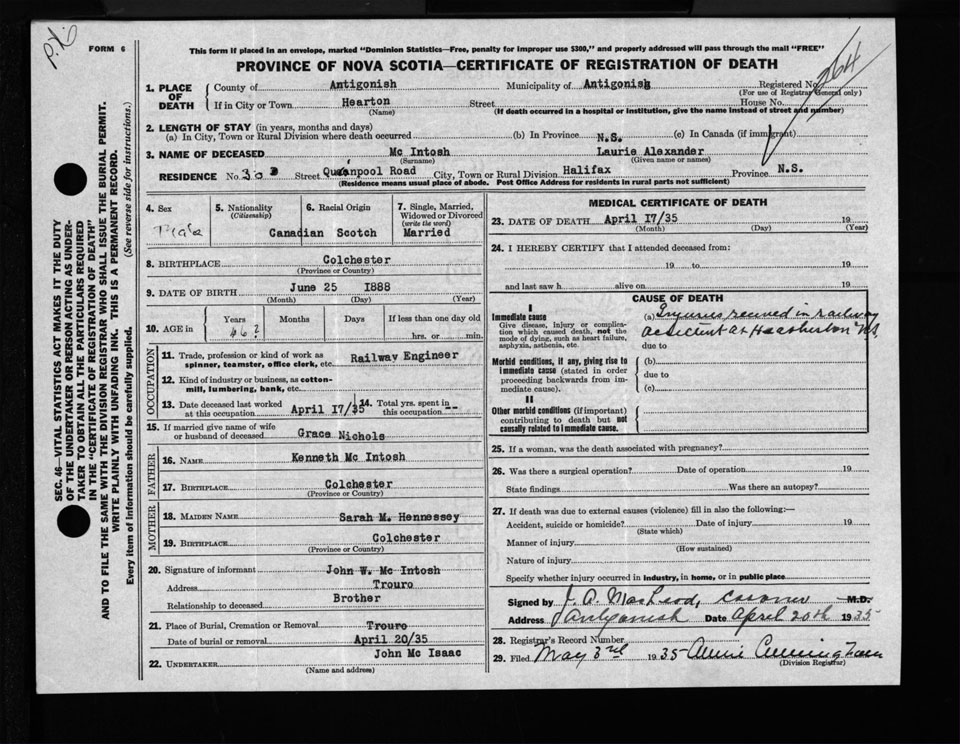 P.X.
FORM 6
This form if placed in an envelope, marked "Dominion Statistics—Free, penalty for improper use $300," and properly addressed will pass through the mail "FREE"
PROVINCE OF NOVA SCOTIA—CERTIFICATE OF REGISTRATION OF DEATH
264
1. PLACE OF DEATH County of Antigonish Municipality of Antigonish Registered No.
(For use of Registrar General only)
If in City or Town Hearton Street House No.
(Name) (If death occurred in a hospital or institution, give the name instead of street and number)
2. LENGTH OF STAY (in years, months and days)
(a) In City, Town or Rural Division where death occurred (b) In Province N.S. (c) In Canada (if immigrant)
3. NAME OF DECEASED Mc Intosh Laurie Alexander
(Surname) (Given name or names)
RESIDENCE No. 302 Street Quinpool Road City, Town or Rural Division Halifax Province N.S.
(Residence means usual place of abode. Post Office Address for residents in rural parts not sufficient)
4. Sex 5. Nationality (Citizenship) 6. Racial Origin 7. Single, Married, Widowed or Divorced (write the word)
Male Canadian Scotch Married
8. BIRTHPLACE Colchester
(Province or Country)
9. DATE OF BIRTH June 25 1888
(Month) (Day) (Year)
10. AGE in Years Months Days If less than one day old
46? hrs. or min.
OCCUPATION
11. Trade, profession or kind of work as spinner, teamster, office clerk, etc. Railway Engineer
12. Kind of industry or business, as cotton-mill, lumbering, bank, etc.
13. Date deceased last worked at this occupation April 17/35 14. Total yrs. spent in this occupation --
15. If married give name of wife or husband of deceased Grace Nichols
FATHER
16. NAME Kenneth Mc Intosh
17. BIRTHPLACE Colchester
(Province or Country)
MOTHER
18. MAIDEN NAME Sarah M. Hennessey
19. BIRTHPLACE Colchester
(Province or Country)
20. Signature of informant John W. Mc Intosh
Address Trouro
Relationship to deceased Brother
21. Place of Burial, Cremation or Removal Trouro
Date of burial or removal April 20/35
22. UNDERTAKER John Mc Isaac
(Name and address)
MEDICAL CERTIFICATE OF DEATH
23. DATE OF DEATH April 17/35 19
(Month) (Day) (Year)
24. I HEREBY CERTIFY that I attended deceased from:
19 to 19
and last saw h alive on 19
CAUSE OF DEATH
I
Immediate cause
Give disease, injury or complication which caused death, not the mode of dying, such as heart failure, asphyxia, asthenia, etc.
(a) Injuries received in railway
accident at Heatherton N.S.
due to
Morbid conditions, if any, giving rise to immediate cause (stated in order proceeding backwards from immediate cause).
(b)
due to
(c)
II
Other morbid conditions (if important) contributing to death but not causally related to immediate cause.
25. If a woman, was the death associated with pregnancy?
26. Was there a surgical operation? Date of operation 19
State findings Was there an autopsy?
27. If death was due to external causes (violence) fill in also the following:—
Accident, suicide or homicide? Date of injury 19
(State which)
Manner of injury
(How sustained)
Nature of injury
Specify whether injury occurred in industry, in home, or in public place
Signed by J. A. MacLeod, coroner M.D.
Address Antigonish Date April 20th 1935
28. Registrar's Record Number
29. Filed May 3rd 1935 Annie Cunningham
(Division Registrar)
SEC. 46—VITAL STATISTICS ACT MAKES IT THE DUTY
OF THE UNDERTAKER OR PERSON ACTING AS UNDER-
TAKER TO OBTAIN ALL THE PARTICULARS REQUIRED
IN THE "CERTIFICATE OF REGISTRATION OF DEATH"
AND TO FILE THE SAME WITH THE DIVISION REGISTRAR WHO SHALL ISSUE THE BURIAL PERMIT.
WRITE PLAINLY WITH UNFADING INK. THIS IS A PERMANENT RECORD.
Every item of information should be carefully supplied. (See reverse side for instructions.)